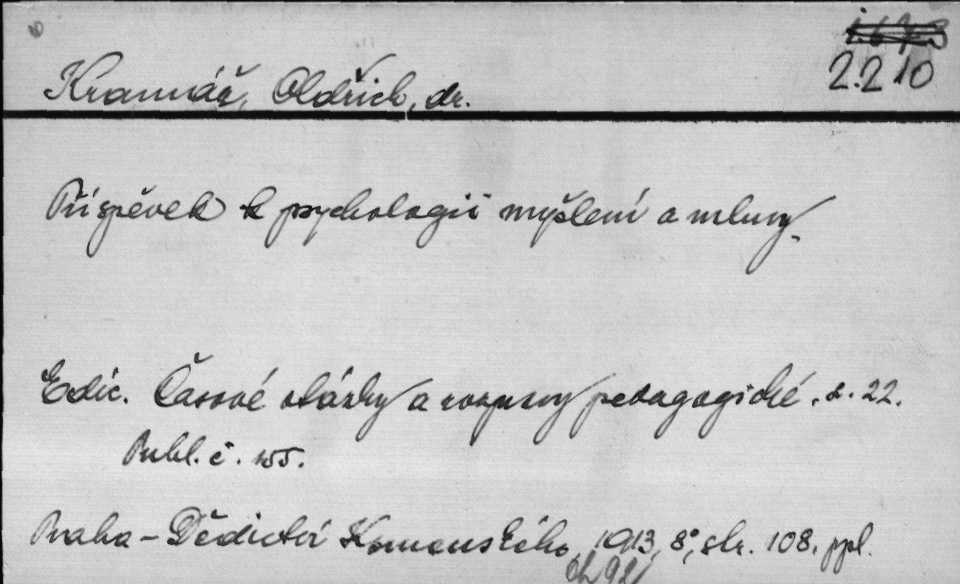 2.210
Kramář, Oldřich, dr.
Příspěvek k psychologii myšlení a mluvy.
Edic. Časové otázky a rozpravy pedagogické. d. 22.
Publ. č. 105.
Praha - Dědictví Komenského, 1913, 8°, str. 108, ppl.